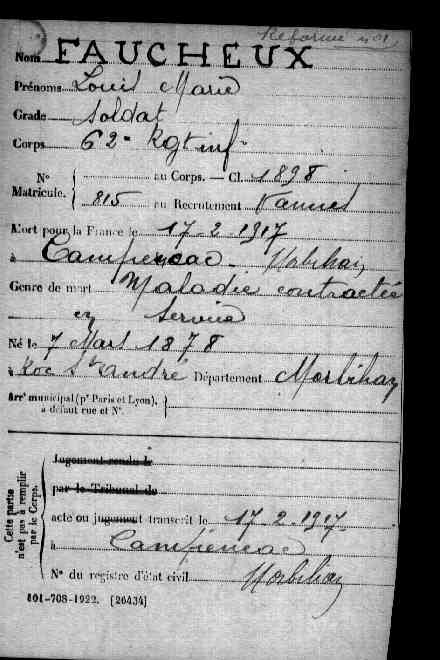 Réformé n°1
Nom FAUCHEUX
Prénoms Louis Marie
Grade Soldat
Corps 62e Rgt inf
N° Matricule. { au Corps. — Cl. 1898
815 au Recrutement Vannes
Mort pour la France le 17-2-1917
à Campénéac - Morbihan
Genre de mort Maladie contractée
en Service
Né le 7 Mars 1878
à Roc St André Département Morbihan
Arr' municipal (pr Paris et Lyon), à défaut rue et N°. }
Cette partie n'est pas à remplir par le Corps.
Jugement rendu le
par le Tribunal de
acte ou jugement transcrit le 17-2-1917
à Campénéac
N° du registre d'état civil Morbihan
101-708-1922. [26434]